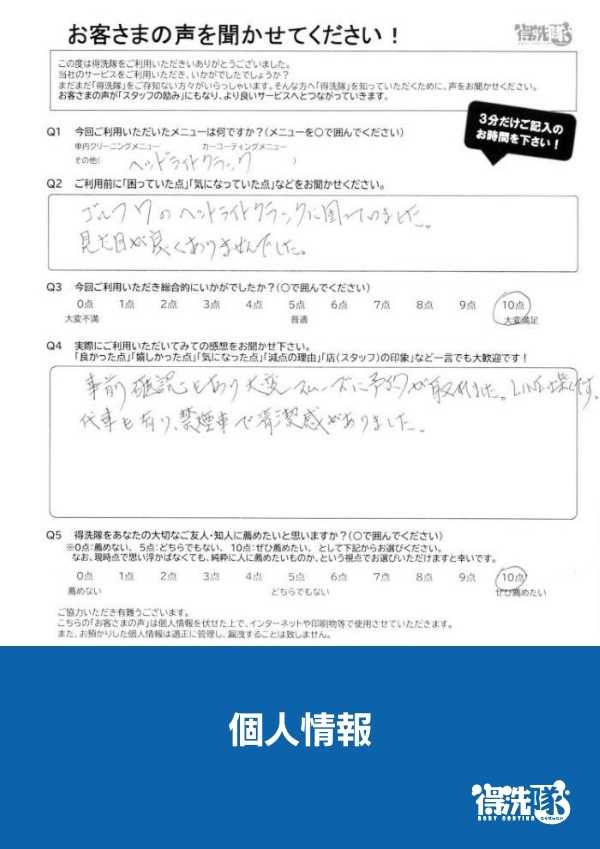 お客さまの声を聞かせてください！
得洗隊
この度は得洗隊をご利用いただきありがとうございました。
当社のサービスをご利用いただき、いかがでしたでしょうか？
まだまだ「得洗隊」をご存知ない方々がいらっしゃいます。そんな方へ「得洗隊」を知っていただくために、声をお聞かせください。
お客さまの声が「スタッフの励み」にもなり、より良いサービスへとつながっていきます。
3分だけご記入の
お時間を下さい！
Q1 今回ご利用いただいたメニューは何ですか？（メニューを〇で囲んでください）
車内クリーニングメニュー カーコーティングメニュー
その他( ヘッドライトクラック )
Q2 ご利用前に「困っていた点」「気になっていた点」などをお聞かせください。
ゴルフ7のヘッドライトクラックに困っていました。
見た目が良くありませんでした。
Q3 今回ご利用いただき総合的にいかがでしたか？（〇で囲んでください）
0点 1点 2点 3点 4点 5点 6点 7点 8点 9点 10点
大変不満 普通 大変満足
Q4 実際にご利用いただいてみての感想をお聞かせ下さい。
「良かった点」「嬉しかった点」「気になった点」「減点の理由」「店（スタッフ）の印象」など一言でも大歓迎です！
事前確認もあり大変スムーズに予約が取れました。LINEも楽です。
代車も有り、禁煙車で清潔感がありました。
Q5 得洗隊をあなたの大切なご友人・知人に薦めたいと思いますか？（〇で囲んでください）
※0点：薦めない、 5点：どちらでもない、 10点：ぜひ薦めたい、 として下記からお選びください。
なお、現時点で思い浮かばなくても、純粋に人に薦めたいものか、という視点でお選びいただけますと幸いです。
0点 1点 2点 3点 4点 5点 6点 7点 8点 9点 10点
薦めない どちらでもない ぜひ薦めたい
ご協力いただき有難うございます。
こちらの「お客さまの声」は個人情報を伏せた上で、インターネットや印刷物等で使用させていただきます。
また、お預かりした個人情報は適正に管理し、漏洩することは致しません。
個人情報
得洗隊
BODY COATING